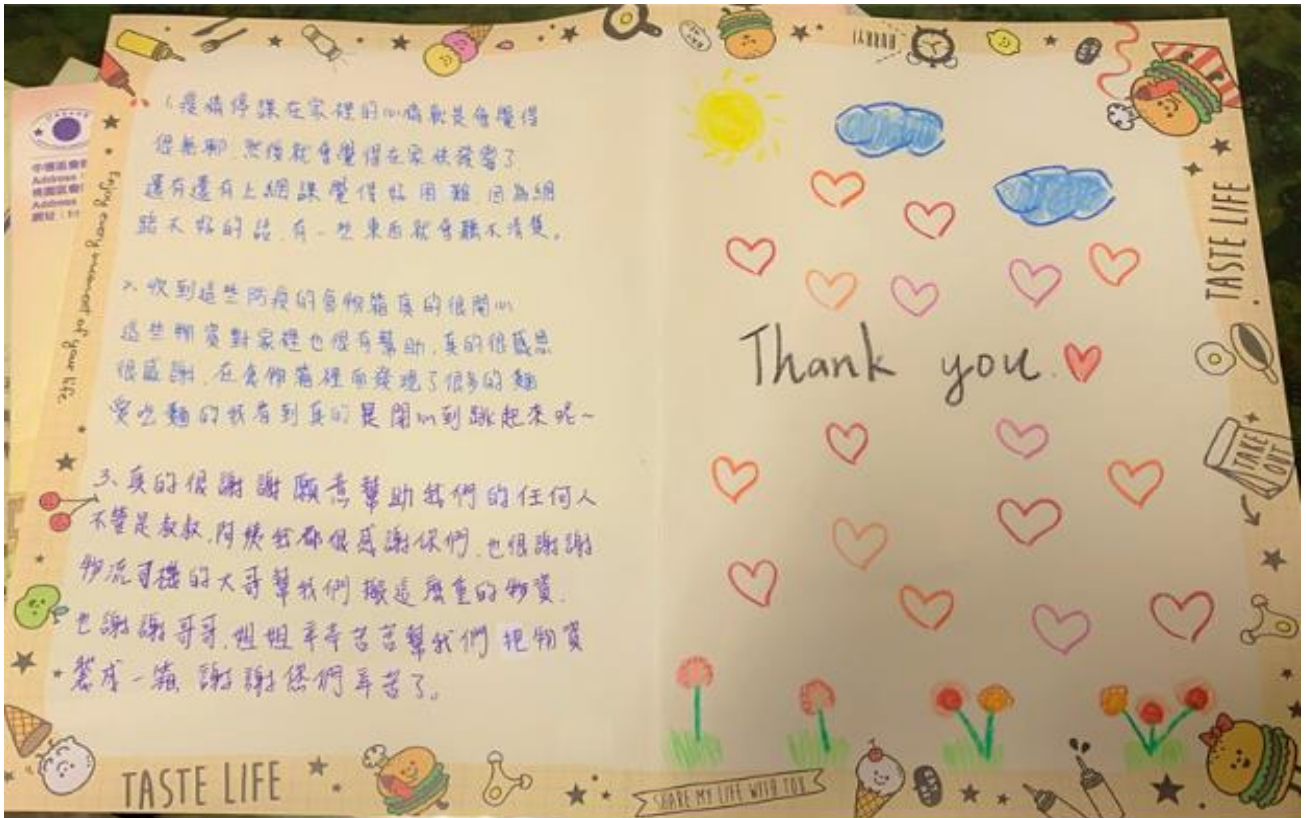 1.疫情停課在家裡的心情就是會覺得
很無聊,然後就會覺得在家快發霉了.
還有還有上網課覺得好困難,因為網
路不好的話,有一些東西就會聽不清楚。
2、收到這些防疫的食物箱真的很開心
這些物資對家裡也很有幫助,真的很感恩
很感謝,在食物箱裡面發現了很多的麵
愛吃麵的我看到真的是開心到跳起來呢~
3、真的很謝謝願意幫助我們的任何人
不管是叔叔,阿姨我都很感謝你們,也很謝謝
物流司機的大哥幫我們搬這麼重的物資.
也謝謝哥哥,姐姐辛辛苦苦幫我們把物資
裝成一箱,謝謝您們辛苦了。
Enjoy every moment of your life
TASTE LIFE
Thank you.
HURRY!
TASTE LIFE
TAKE OUT
SHARE MY LIFE WITH YOU
Address
Address